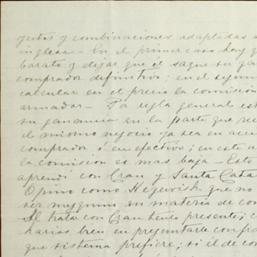 gustos y combinaciones adaptadas a
inglesa - En el primer caso hay q
barato y dejar que el saque su ga
comprador definitivo; en el segun
calcular en el precio la comisión
armador - La regla general es
su ganancia en la parte que re
el mismo negocio ya sea en acci
comprador ó en efectivo; en este
la comisión es mas baja - Esto
aprendí con Cran y Santa Cata
Opino como Hegewisch que no
ser en materia de co
Al trato con Cran tenlo presente; c
harias bien en preguntarle confid
que sistema prefiere; si el de com